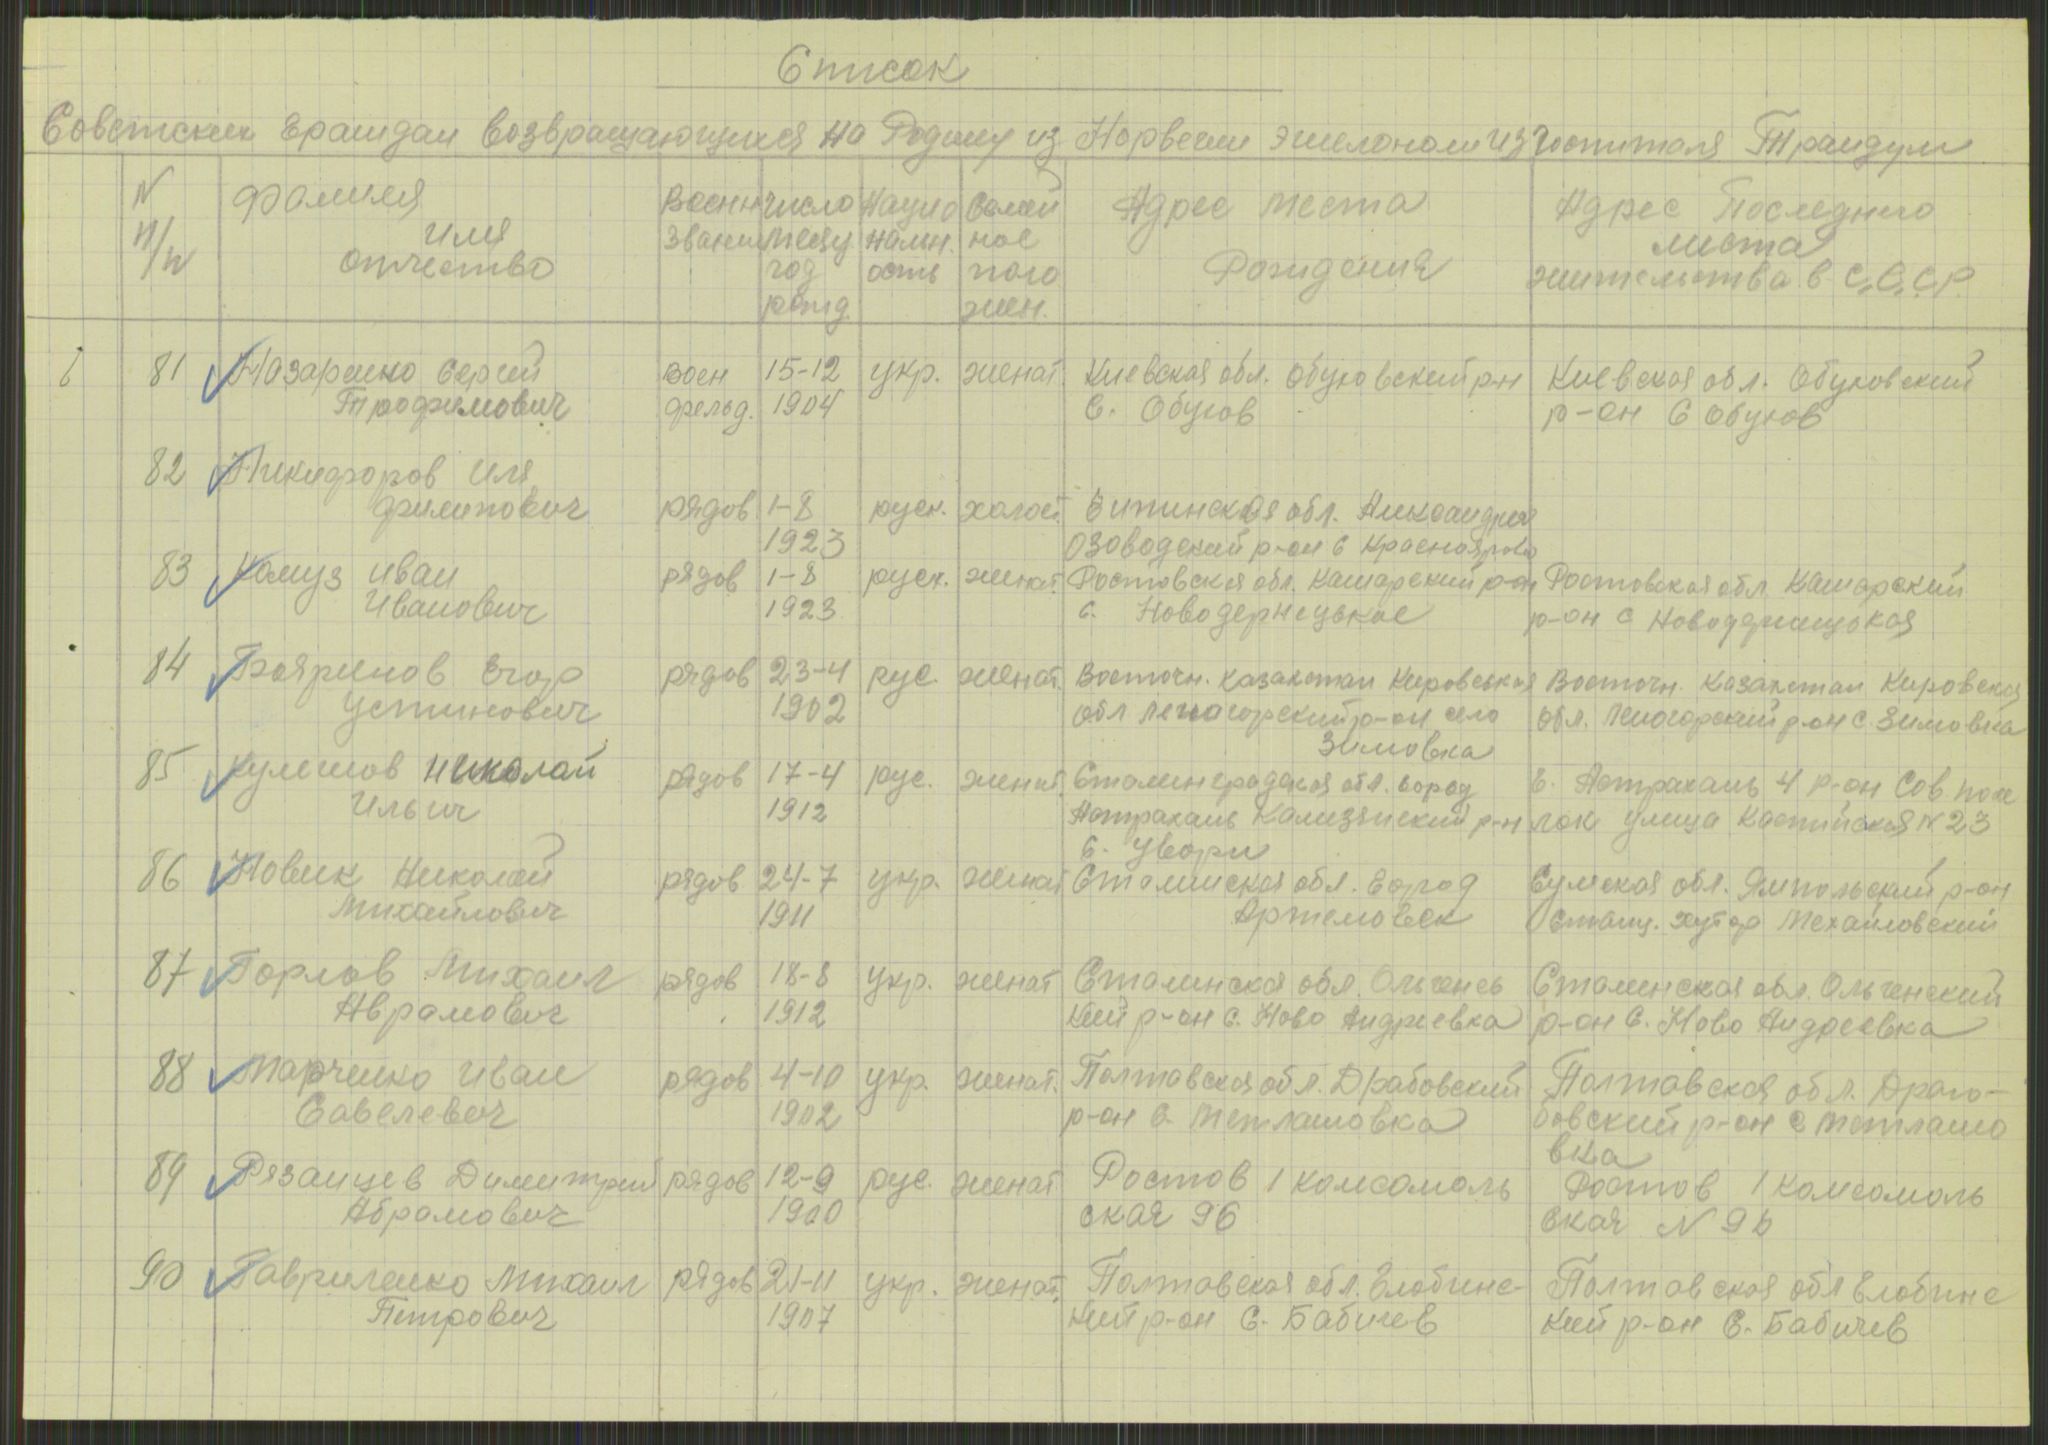 Список
Советских Граждан возвращающихся на Родину из Норвегии эшелоном из госпиталя Трандум
N п/п | Фамилия имя отчество | Военн звание | Число месяц год рожд. | Национальн. ость | Семей ное поло жен. | Адрес места Рождения | Адрес Последнего места жительства в С.С.С.Р
81 Назаренко Сергей | воен | 15-12 | укр. | женат. | Киевская обл. Обуховский р-н | Киевская обл. Обуховский
Трофимович | фельд. | 1904 | с. Обухов | р-он с Обухов
82 Никифоров Иля
Филипович | рядов | 1-8 | руск. | холост. | обл. Александрия
1923 | Озаводский р-он с Красноярово
83 Комуз Иван | рядов | 1-8 | руск. | женат. | Ростовская обл. Кашарский р-он | Ростовская обл Кашарский
Иванович | 1923 | с. Новодернецькое | р-он с
84 Бояринов Егор | рядов | 23-4 | рус. | женат. | Восточн. Казахстан Кировськая | Восточн. Казахстан Кировская
Устинович | 1902 | обл Леногорский р-он село | обл. Леногорский р-он с. Зимовка
Зимовка
85 Кулешов Николай | рядов | 17-4 | рус. | женат. | Сталинградская обл. город | г. Астрахань 4 р-он Сов. посе
Ильич | 1912 | Астрахань Камызянский р-н | лок улица Каспийская N 23
с. Увари
86 Новик Николай | рядов | 24-7 | укр. | женат | Сталинская обл. Город | Сумская обл. Ямпольский р-он
Михайлович | 1911 | Артемовск | станц. хутор Михайловский
87 Горлов Михаил | рядов | 18-8 | укр. | женат | Сталинская обл. Ольгенсь | Сталинская обл. Ольгенский
Аврамович | 1912 | кий р-он с. Ново Андреевка | р-он с. Ново Андреевка
88 Марченко Иван | рядов | 4-10 | укр. | женат. | Полтавская обл. Драбовский | Полтавская обл. Драго-
Савелевич | 1902 | р-он с. Метлашовка | бовский р-он с Метлашо
вка
89 Рязанцев Димитрий | рядов | 12-9 | рус. | женат | Ростов 1 комсомоль | Ростов 1 комсомоль
Абрамович | 1900 | ская 96 | ская N 96
90 Гавриленко Михаил | рядов | 21-11 | укр. | женат. | Полтавская обл. Глобинс- | Полтавская обл Глобинс
Петрович | 1907 | кий р-он с. Бабичев | кий р-он с. Бабичев